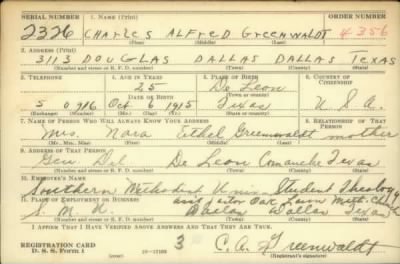 SERIAL NUMBER 1. NAME (Print) ORDER NUMBER
2326 CHARLES ALFRED GREENWALDT 4356
(First) (Middle) (Last)
2. ADDRESS (Print)
3113 DOUGLAS DALLAS DALLAS TEXAS
(Number and street or R. F. D. number) (Town) (County) (State)
3. TELEPHONE 4. AGE IN YEARS 5. PLACE OF BIRTH 6. COUNTRY OF CITIZENSHIP
25 De Leon
DATE OF BIRTH (Town or county)
5 0716 Oct 6 1915 Texas U. S. A.
(Exchange) (Number) (Mo.) (Day) (Yr.) (State or country)
7. NAME OF PERSON WHO WILL ALWAYS KNOW YOUR ADDRESS 8. RELATIONSHIP OF THAT PERSON
Mrs. Nora Ethel Greenwaldt mother
(Mr., Mrs., Miss) (First) (Middle) (Last)
9. ADDRESS OF THAT PERSON
Gen. Del De Leon Comanche Texas
(Number and street or R. F. D. number) (Town) (County) (State)
10. EMPLOYER'S NAME
Southern Methodist Univ. Student Theology
11. PLACE OF EMPLOYMENT OR BUSINESS Oak Lawn Meth. Church
S. M. U. Dallas Dallas Texas
(Number and street or R. F. D. number) (Town) (County) (State)
I AFFIRM THAT I HAVE VERIFIED ABOVE ANSWERS AND THAT THEY ARE TRUE.
REGISTRATION CARD
D. S. S. Form 1 3 C. A. Greenwaldt
(Registrant's signature)